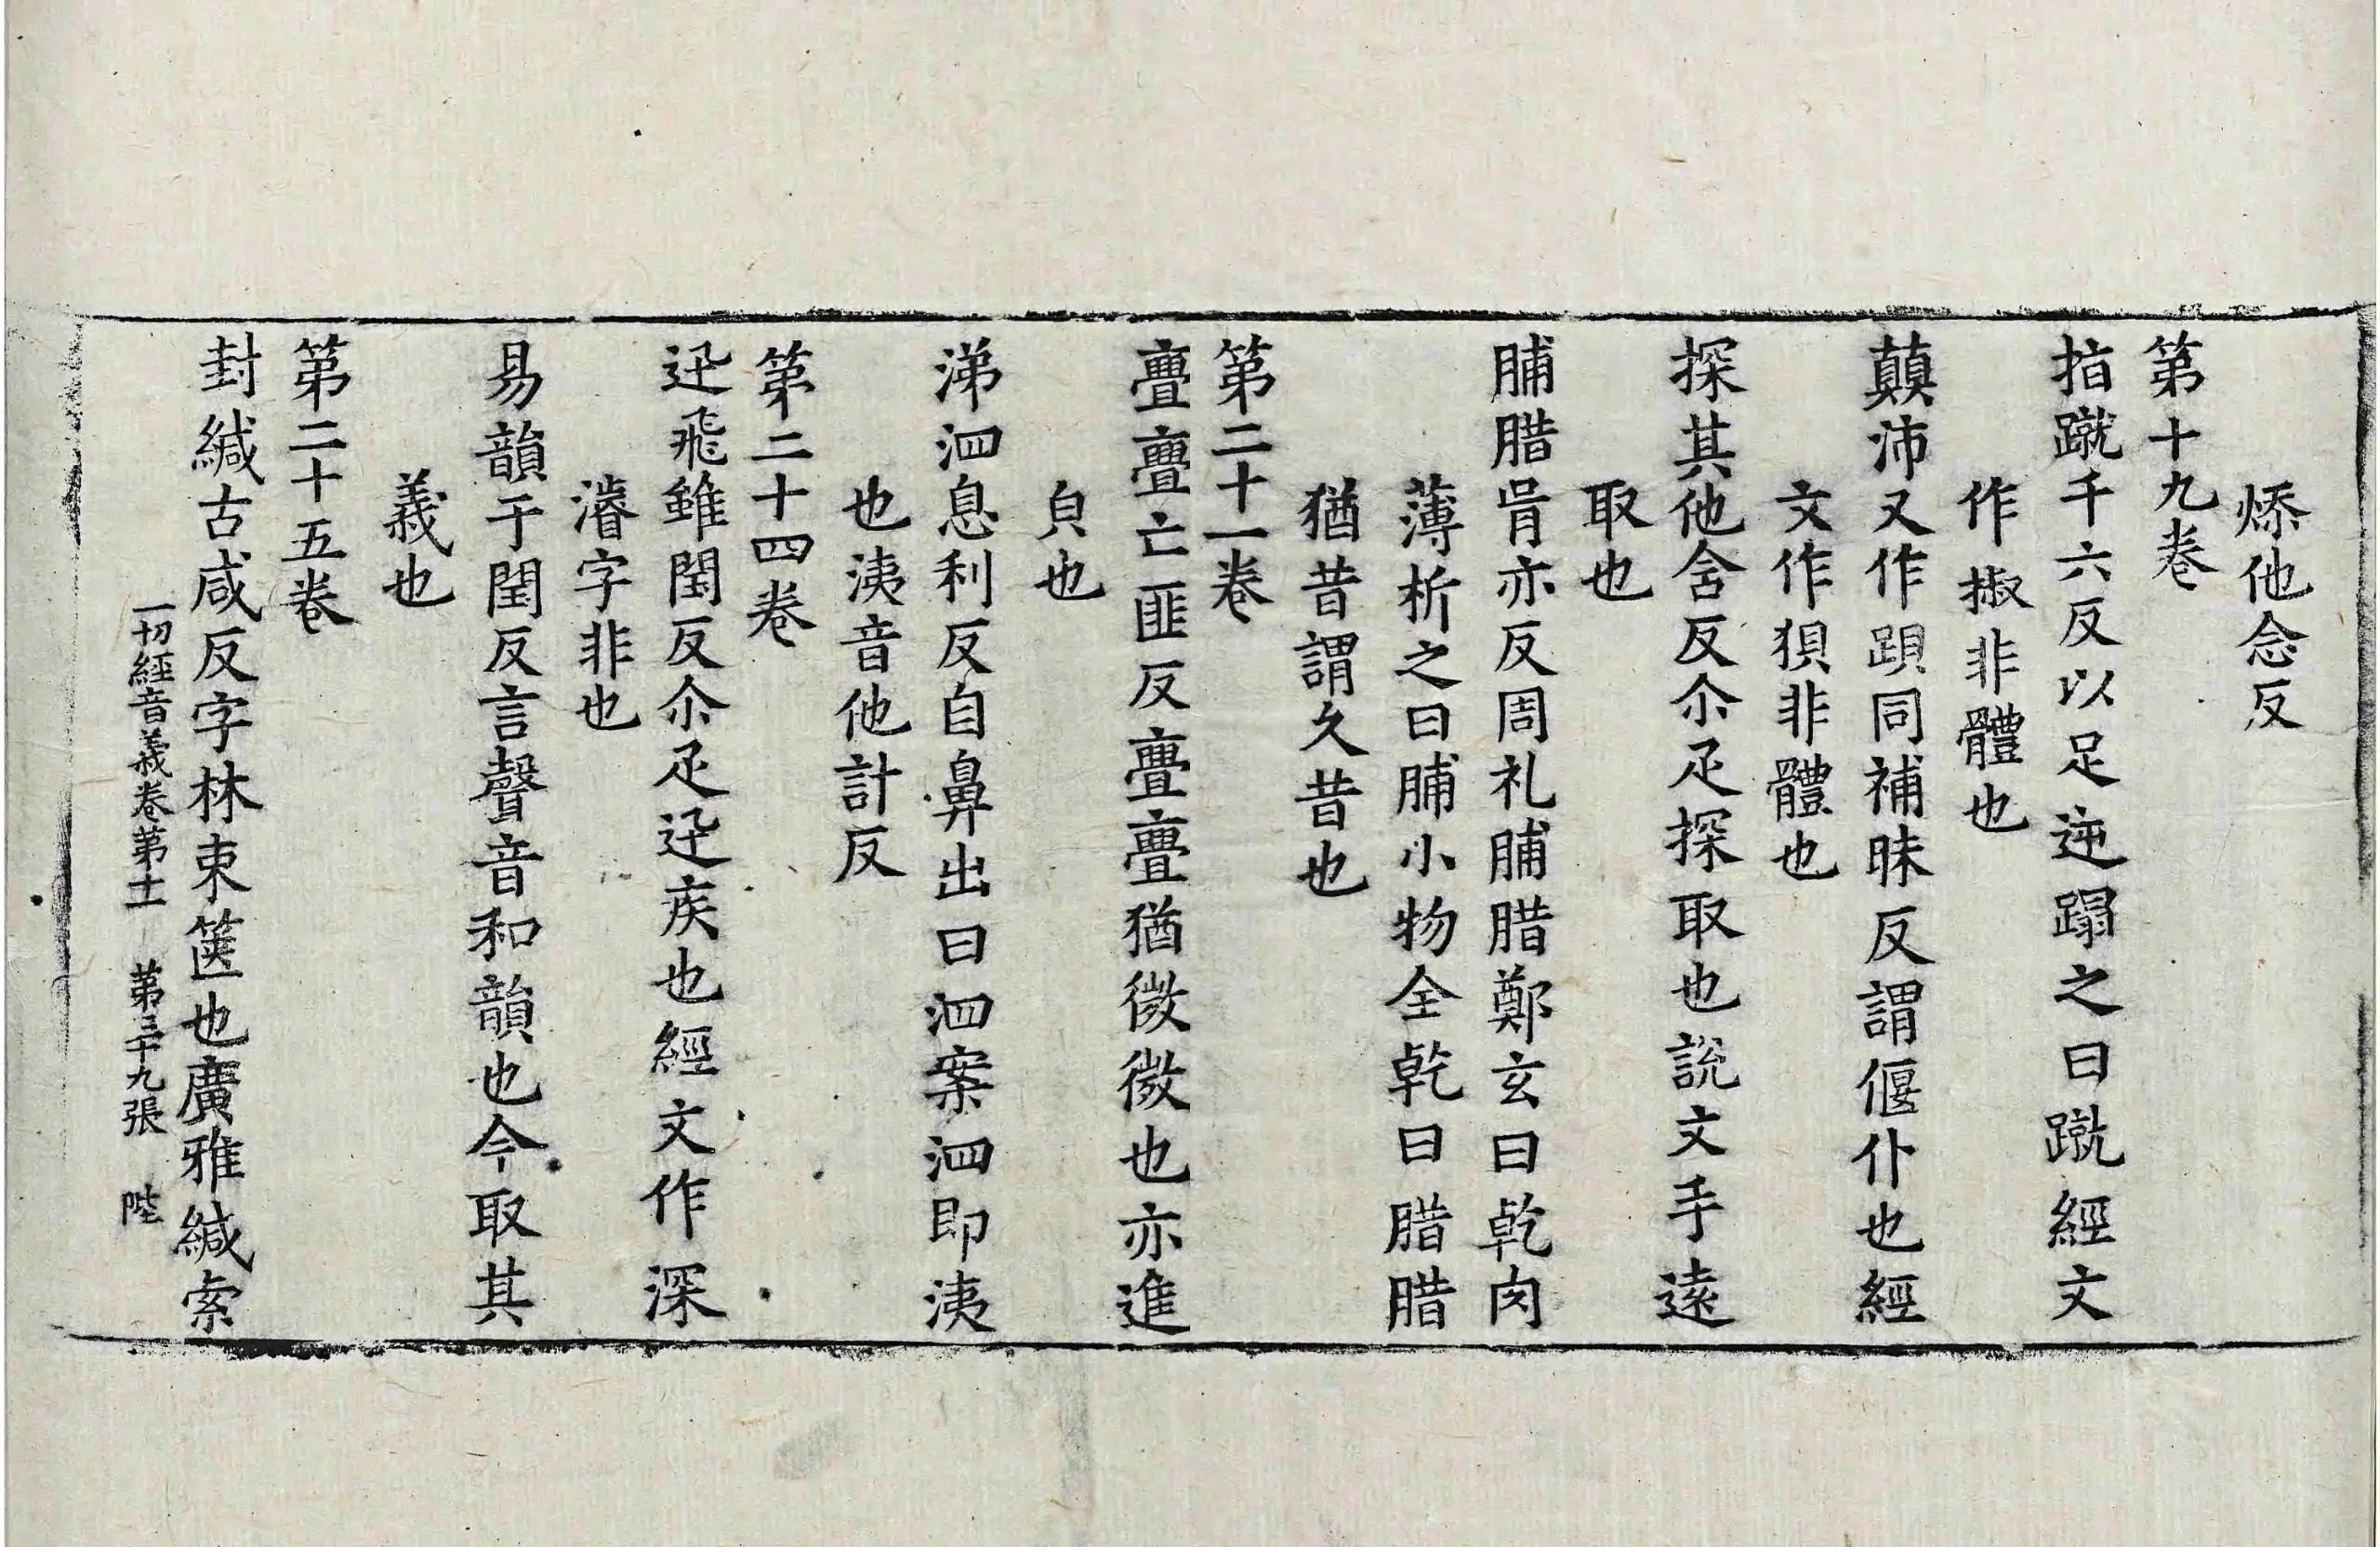 㮇他念反
第十九卷
指蹴千六反以足逆蹋之曰蹴經文
作掓非體也
蘏沛又作䟺同補昧反謂偃仆也經
文作狽非體也
探其他含反尒疋探取也說文手遠
取也
脯腊胥亦反周礼脯腊鄭玄曰乾肉
薄析之曰脯小物全乾曰腊腊
猶昔謂久昔也
第二十一卷
亹亹亡匪反亹亹猶微微也亦進
皃也
涕泗息利反自鼻出曰泗案泗即洟
也洟音他計反
第二十四卷
迅飛雖閏反尒疋迅疾也經文作深
濬字非也
易韻于閏反言聲音和韻也今取其
義也
第二十五卷
封緘古咸反字林束篋也廣雅緘索
一切經音義卷第十一 第三十九張 陛